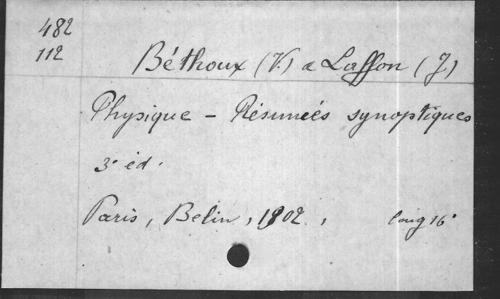 482
112
Béthoux (V.) a Laffon (J)
Physique – Résumés synoptiques
3e éd.
Paris, Belin, 1902, long 16°